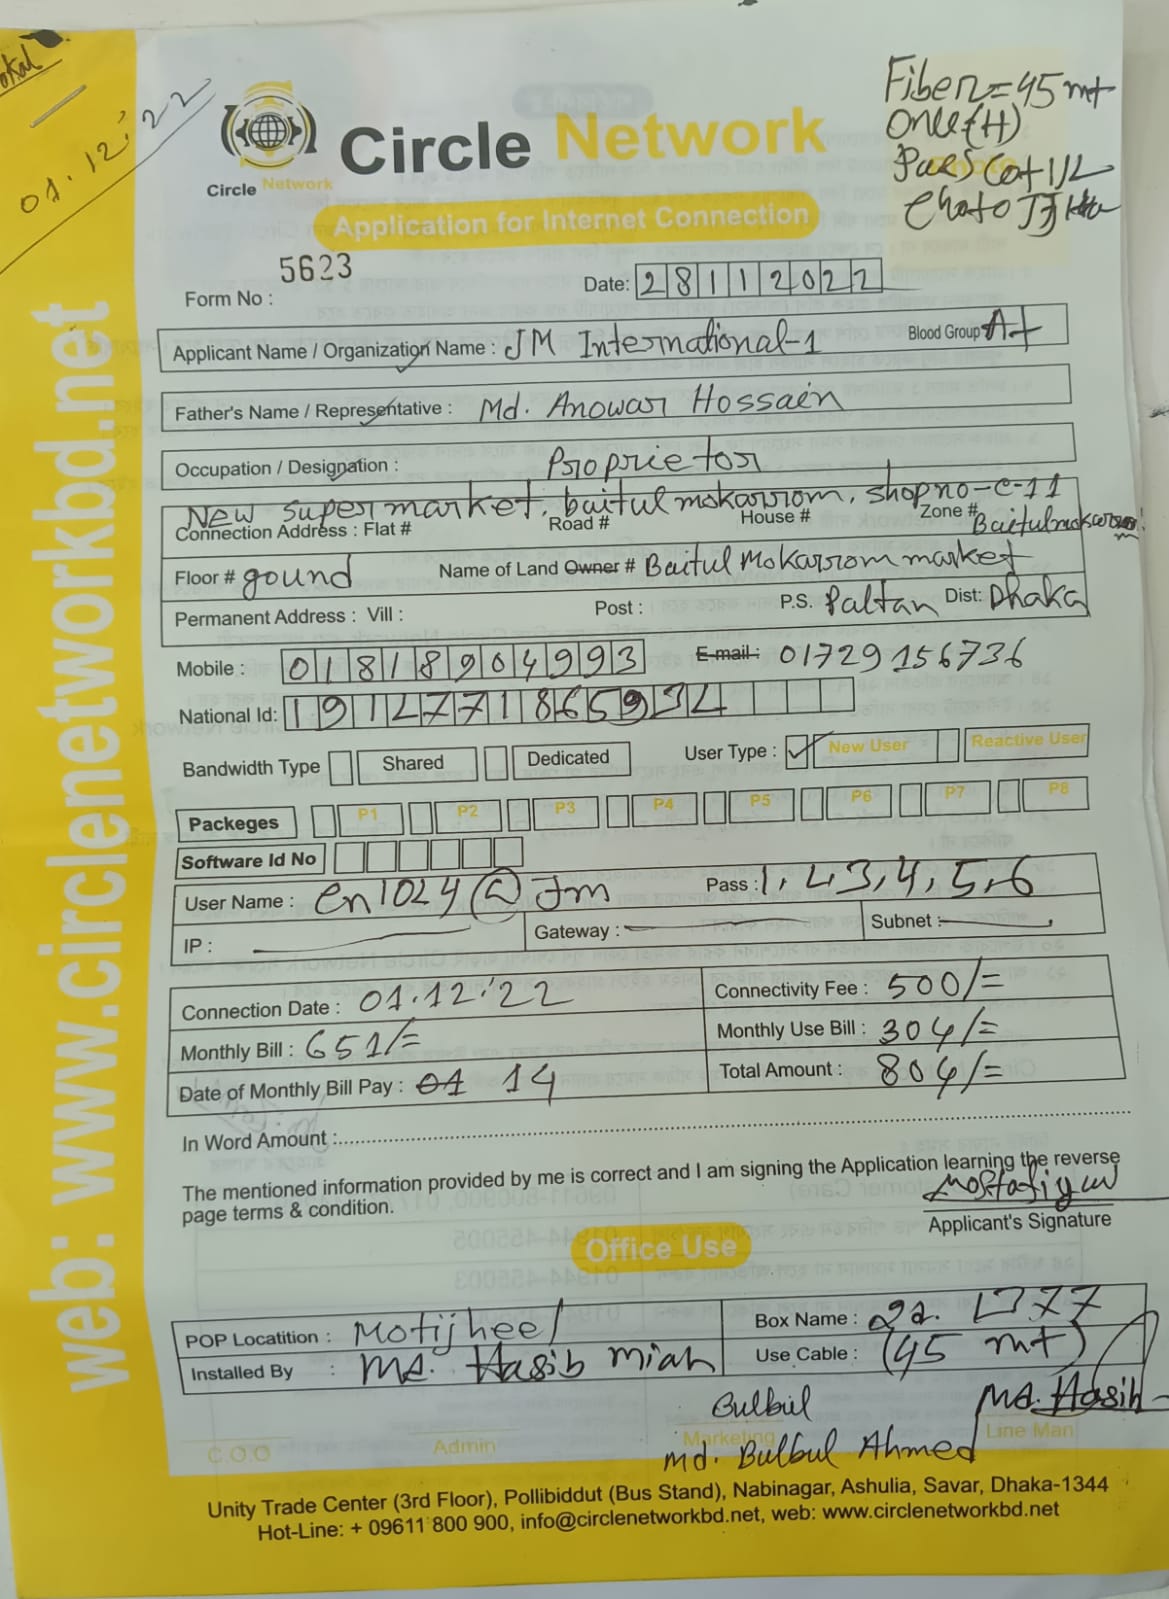 01.12.'22
Fiber=45 mt
Onu(H)
Circle Network
Circle Network
Application for Internet Connection
5623
Form No :
Date: 28112022
Applicant Name / Organization Name : JM International-1 Blood Group A+
Father's Name / Representative : Md. Anowar Hossain
Occupation / Designation : Proprietor
New supermarket, baitul mokarrom, shop no-c-11
Connection Address : Flat # Road # House # Zone # Baitulmokarrom
Floor # gound Name of Land Owner # Baitul Mokarrom market
Permanent Address : Vill : Post : P.S. Paltan Dist: Dhaka
Mobile : 01818904993 E-mail : 01729156736
National Id:
Bandwidth Type Shared Dedicated User Type : ✓ New User Reactive User
Packeges P1 P2 P3 P4 P5 P6 P7 P8
Software Id No
User Name : cn1024@Jm Pass : 1,2,3,4,5,6
IP : Gateway : Subnet :
Connection Date : 01.12.'22 Connectivity Fee : 500/=
Monthly Bill : 651/= Monthly Use Bill : 304/=
Date of Monthly Bill Pay : 01 14 Total Amount : 804/=
In Word Amount :
The mentioned information provided by me is correct and I am signing the Application learning the reverse
page terms & condition.
Applicant's Signature
Office Use
POP Locatition : Motijheel Box Name :
Installed By : Md. Hasib Miah Use Cable : (45 mt)
Bulbul Md. Hasib
C.O.O Admin Marketing Line Man
Md. Bulbul Ahmed
Unity Trade Center (3rd Floor), Pollibiddut (Bus Stand), Nabinagar, Ashulia, Savar, Dhaka-1344
Hot-Line: + 09611 800 900, info@circlenetworkbd.net, web: www.circlenetworkbd.net
web: www.circlenetworkbd.net